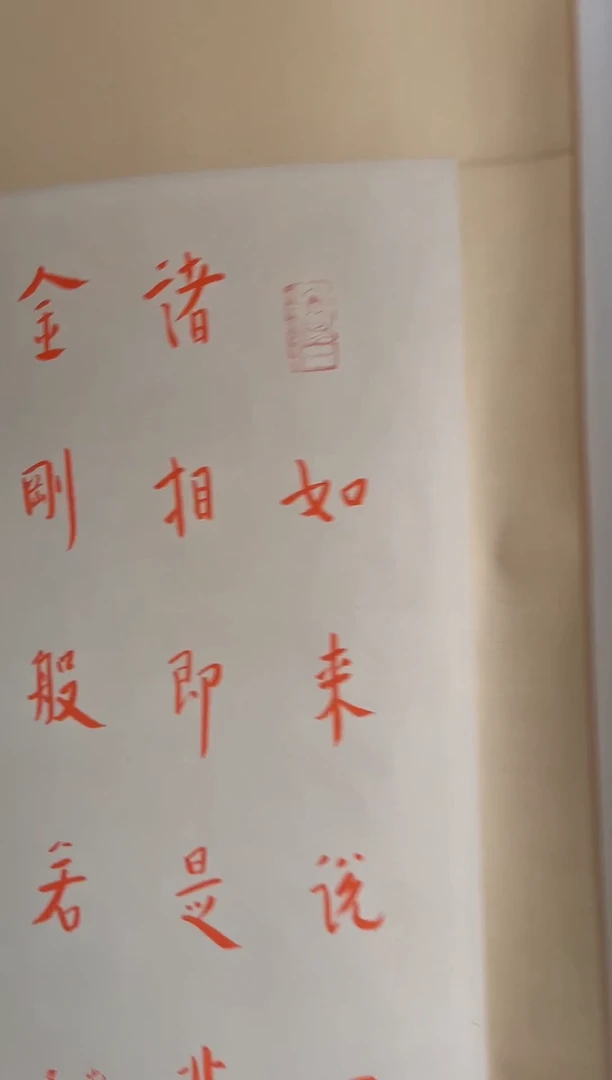 如来说
诸相即是非
金刚般若